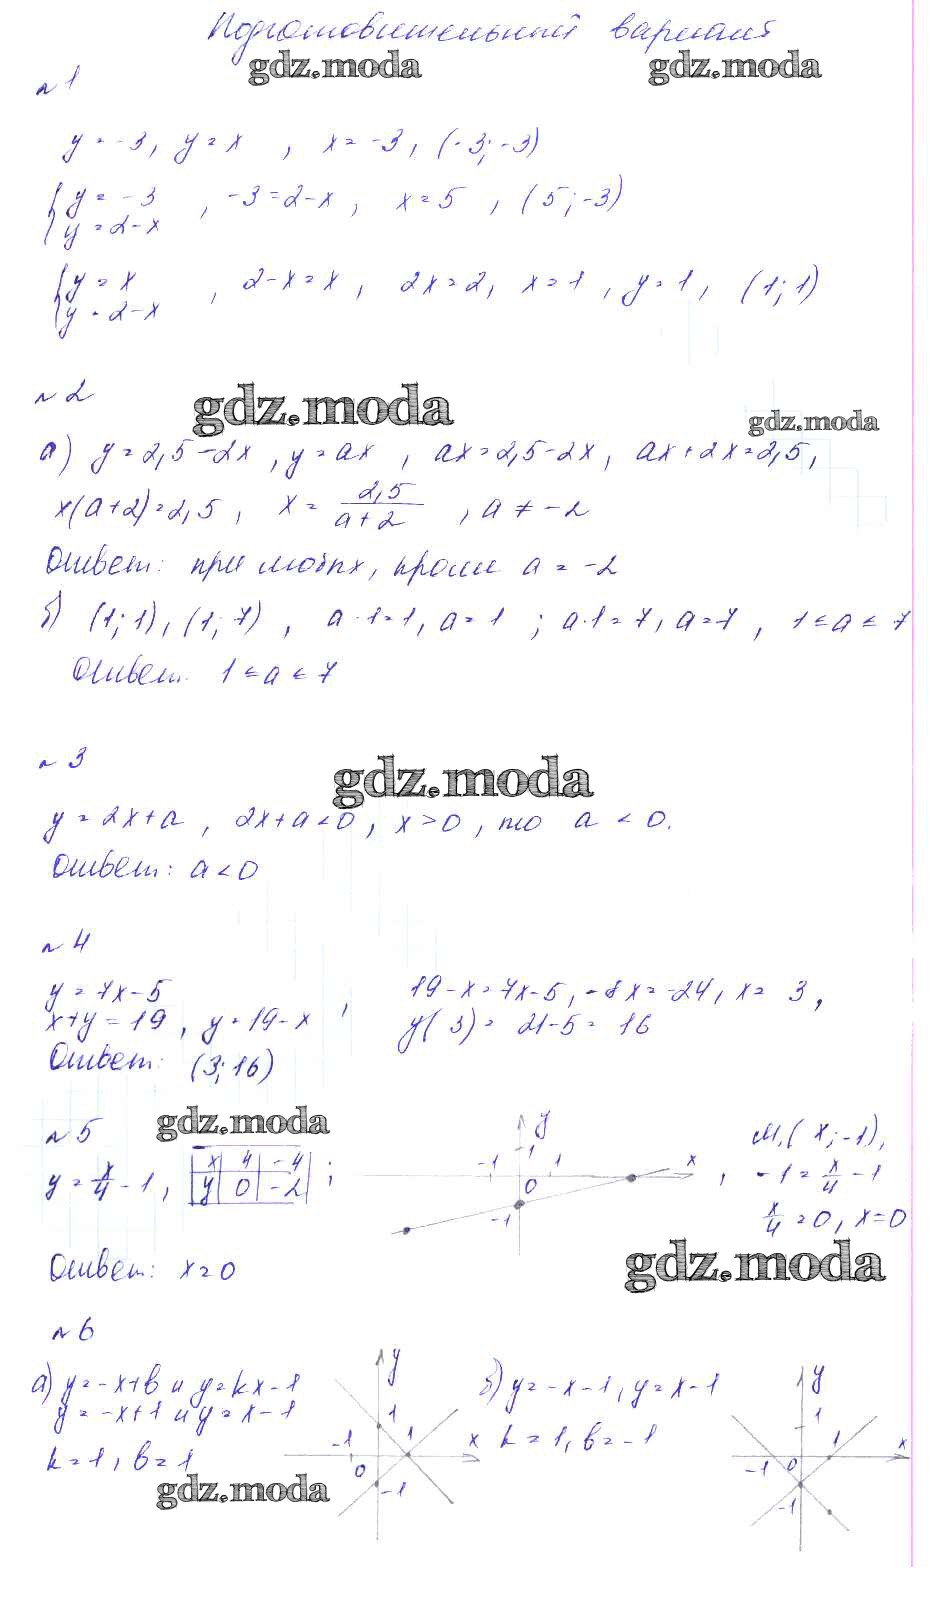 Подготовительный вариант
gdz.moda gdz.moda
№1
y = -3, y = x , x = -3, (-3; -3)
{ y = -3 , -3 = 2-x , x = 5 , (5; -3)
y = 2-x
{ y = x , 2-x = x , 2x = 2, x = 1 , y = 1, (1; 1)
y = 2-x
№2
gdz.moda
gdz.moda
а) y = 2,5-2x , y = ax , ax = 2,5-2x, ax+2x = 2,5,
x(a+2) = 2,5 , x = 2,5/(a+2) , a ≠ -2
Ответ: при любых, кроме a = -2
б) (1; 1), (1; 7) , a·1 = 1, a = 1 ; a·1 = 7, a = 7 , 1 ≤ a ≤ 7
Ответ. 1 ≤ a ≤ 7
№3
gdz.moda
y = 2x+a , 2x+a < 0, x > 0 , то a < 0.
Ответ: a < 0
№4
y = 7x-5 , 19-x = 7x-5, -8x = -24, x = 3 ,
x+y = 19 , y = 19-x y(3) = 21-5 = 16
Ответ: (3; 16)
gdz.moda
№5
y = x/4 - 1 , x 4 -4 ;
y 0 -2
y
-1 1 1 x
0
-1
, M, (x; -1),
-1 = x/4 - 1
x/4 = 0, x = 0
Ответ: x = 0
gdz.moda
№6
а) y = -x+b и y = kx-1
y = -x+1 и y = x-1
k = 1, b = 1
y
1
-1 1 x
0
-1
б) y = -x-1, y = x-1
k = 1, b = -1
y
1
-1 0 1 x
-1
gdz.moda